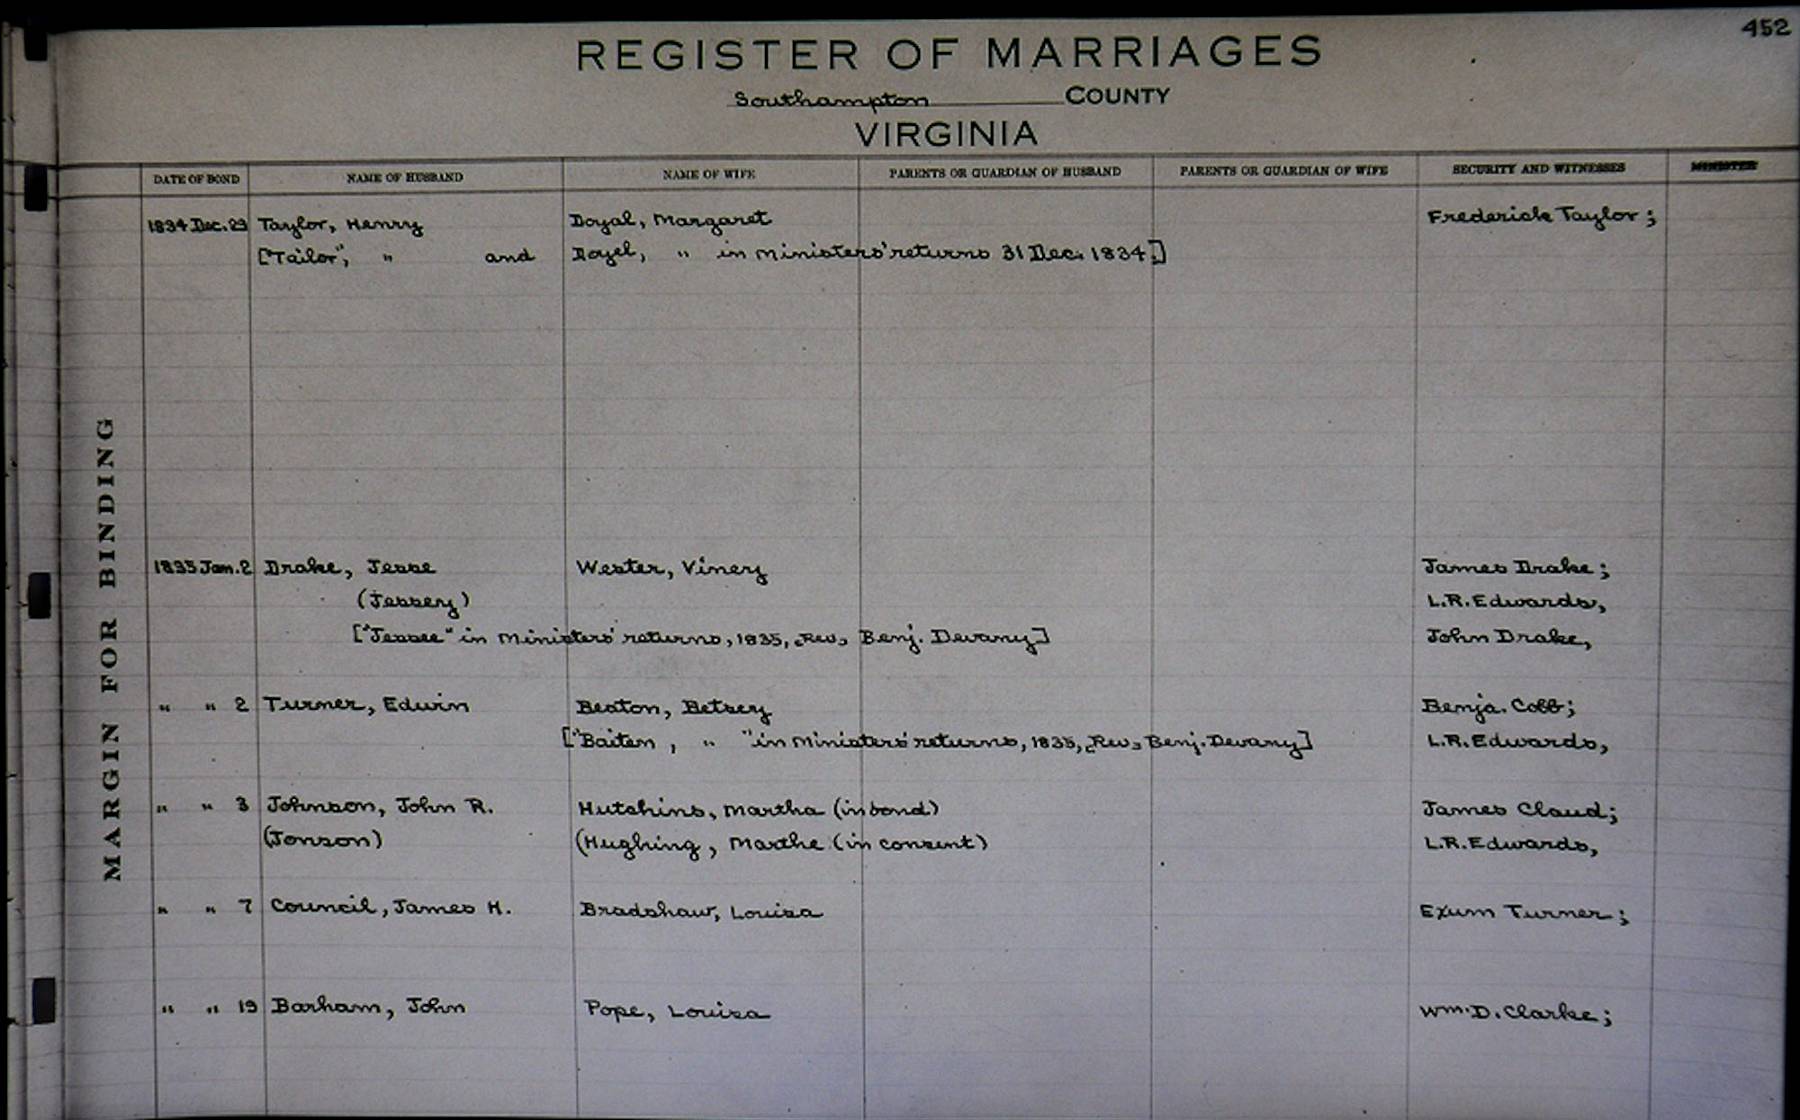 452
REGISTER OF MARRIAGES
Southampton COUNTY
VIRGINIA
DATE OF BOND NAME OF HUSBAND NAME OF WIFE PARENTS OR GUARDIAN OF HUSBAND PARENTS OR GUARDIAN OF WIFE SECURITY AND WITNESSES MINISTER
1834 Dec. 29 Taylor, Henry Doyal, Margaret Frederick Taylor;
["Tailor", " and Doyel, " in Ministers' returns 31 Dec. 1834.]
MARGIN FOR BINDING
1835 Jan. 2 Drake, Jesse Wester, Viney James Drake;
(Jessey) L.R. Edwards,
["Jessee" in Ministers' returns, 1835, [Rev.] Benj. Devany] John Drake,
" " 2 Turner, Edwin Beaton, Betsey Benja. Cobb;
["Baiten, " " in Ministers' returns, 1835, [Rev.] Benj. Devany] L.R. Edwards,
" " 3 Johnson, John R. Hutchins, Martha (in bond) James Claud;
(Jonson) (Hughing, Marthe (in consent) L.R. Edwards,
" " 7 Council, James H. Bradshaw, Louisa Exum Turner;
" " 19 Barham, John Pope, Louisa Wm. D. Clarke;